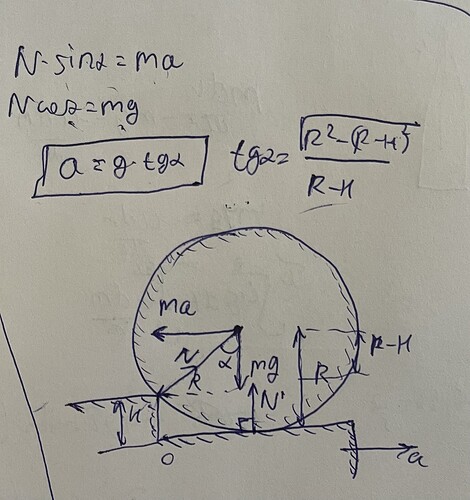 N·sinα = ma
Ncosα = mg
a = g·tgα
tgα = √R²-(R-H)²
R-H
ma
α
mg
R-H
N
R
R
N'
H
O
a